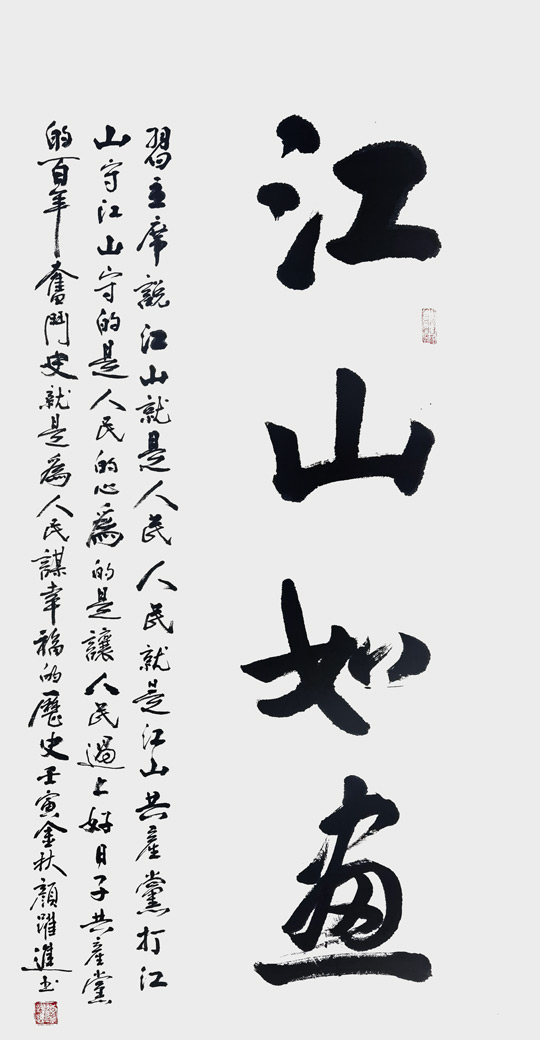 江山如画
習主席説江山就是人民人民就是江山共產黨打江
山守江山守的是人民的心為的是讓人民過上好日子共產黨
的百年奮鬥史就是為人民謀幸福的歷史壬寅金秋顏躍進书